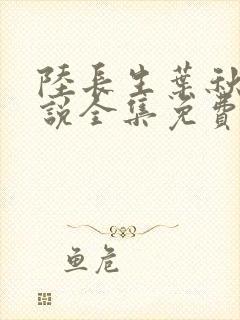 陸長生葉秋
説全集免費
鱼危